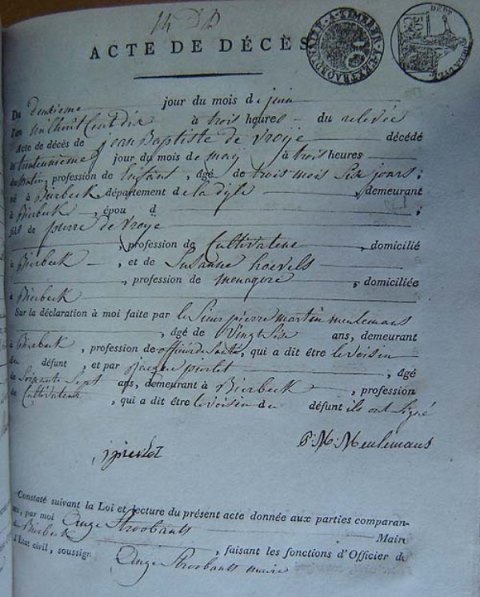 ACTE DE DÉCÈS
Du deuxieme jour du mois de juin
l'an mil huit Cent dix à trois heures du relevée
Acte de décès de jean Baptiste de Vroye décédé
le trenteunieme jour du mois de may à trois heures
du matin, profession de Enfant, âgé de trois mois six jours;
né à Bierbeck, département de la dyle, demeurant
à Bierbeck, épou d
fils de pierre de Vroye
, profession de Cultivateur, domicilié
à Bierbeck, et de Suzanne hoevels
, profession de menagere, domiciliée
à Bierbeck
Sur la déclaration à moi faite par le Sieur pierre martin meulemans
, âgé de Vingt Six ans, demeurant
à Bierbeck, profession de officier de Santé, qui a dit être le voisin
du défunt et par jacque pierlot, âgé
de Soixante Sept ans, demeurant à Bierbeck, profession
de Cultivateur, qui a dit être le voisin du défunt ils ont Signé
jpierlot P. M. Meulemans
Constaté suivant la Loi et lecture du présent acte donnée aux parties comparan-
tes, par moi Ange Stroobants Maire
de Bierbeck, faisant les fonctions d'Officier de
l'État civil, soussign
Ange Stroobants maire